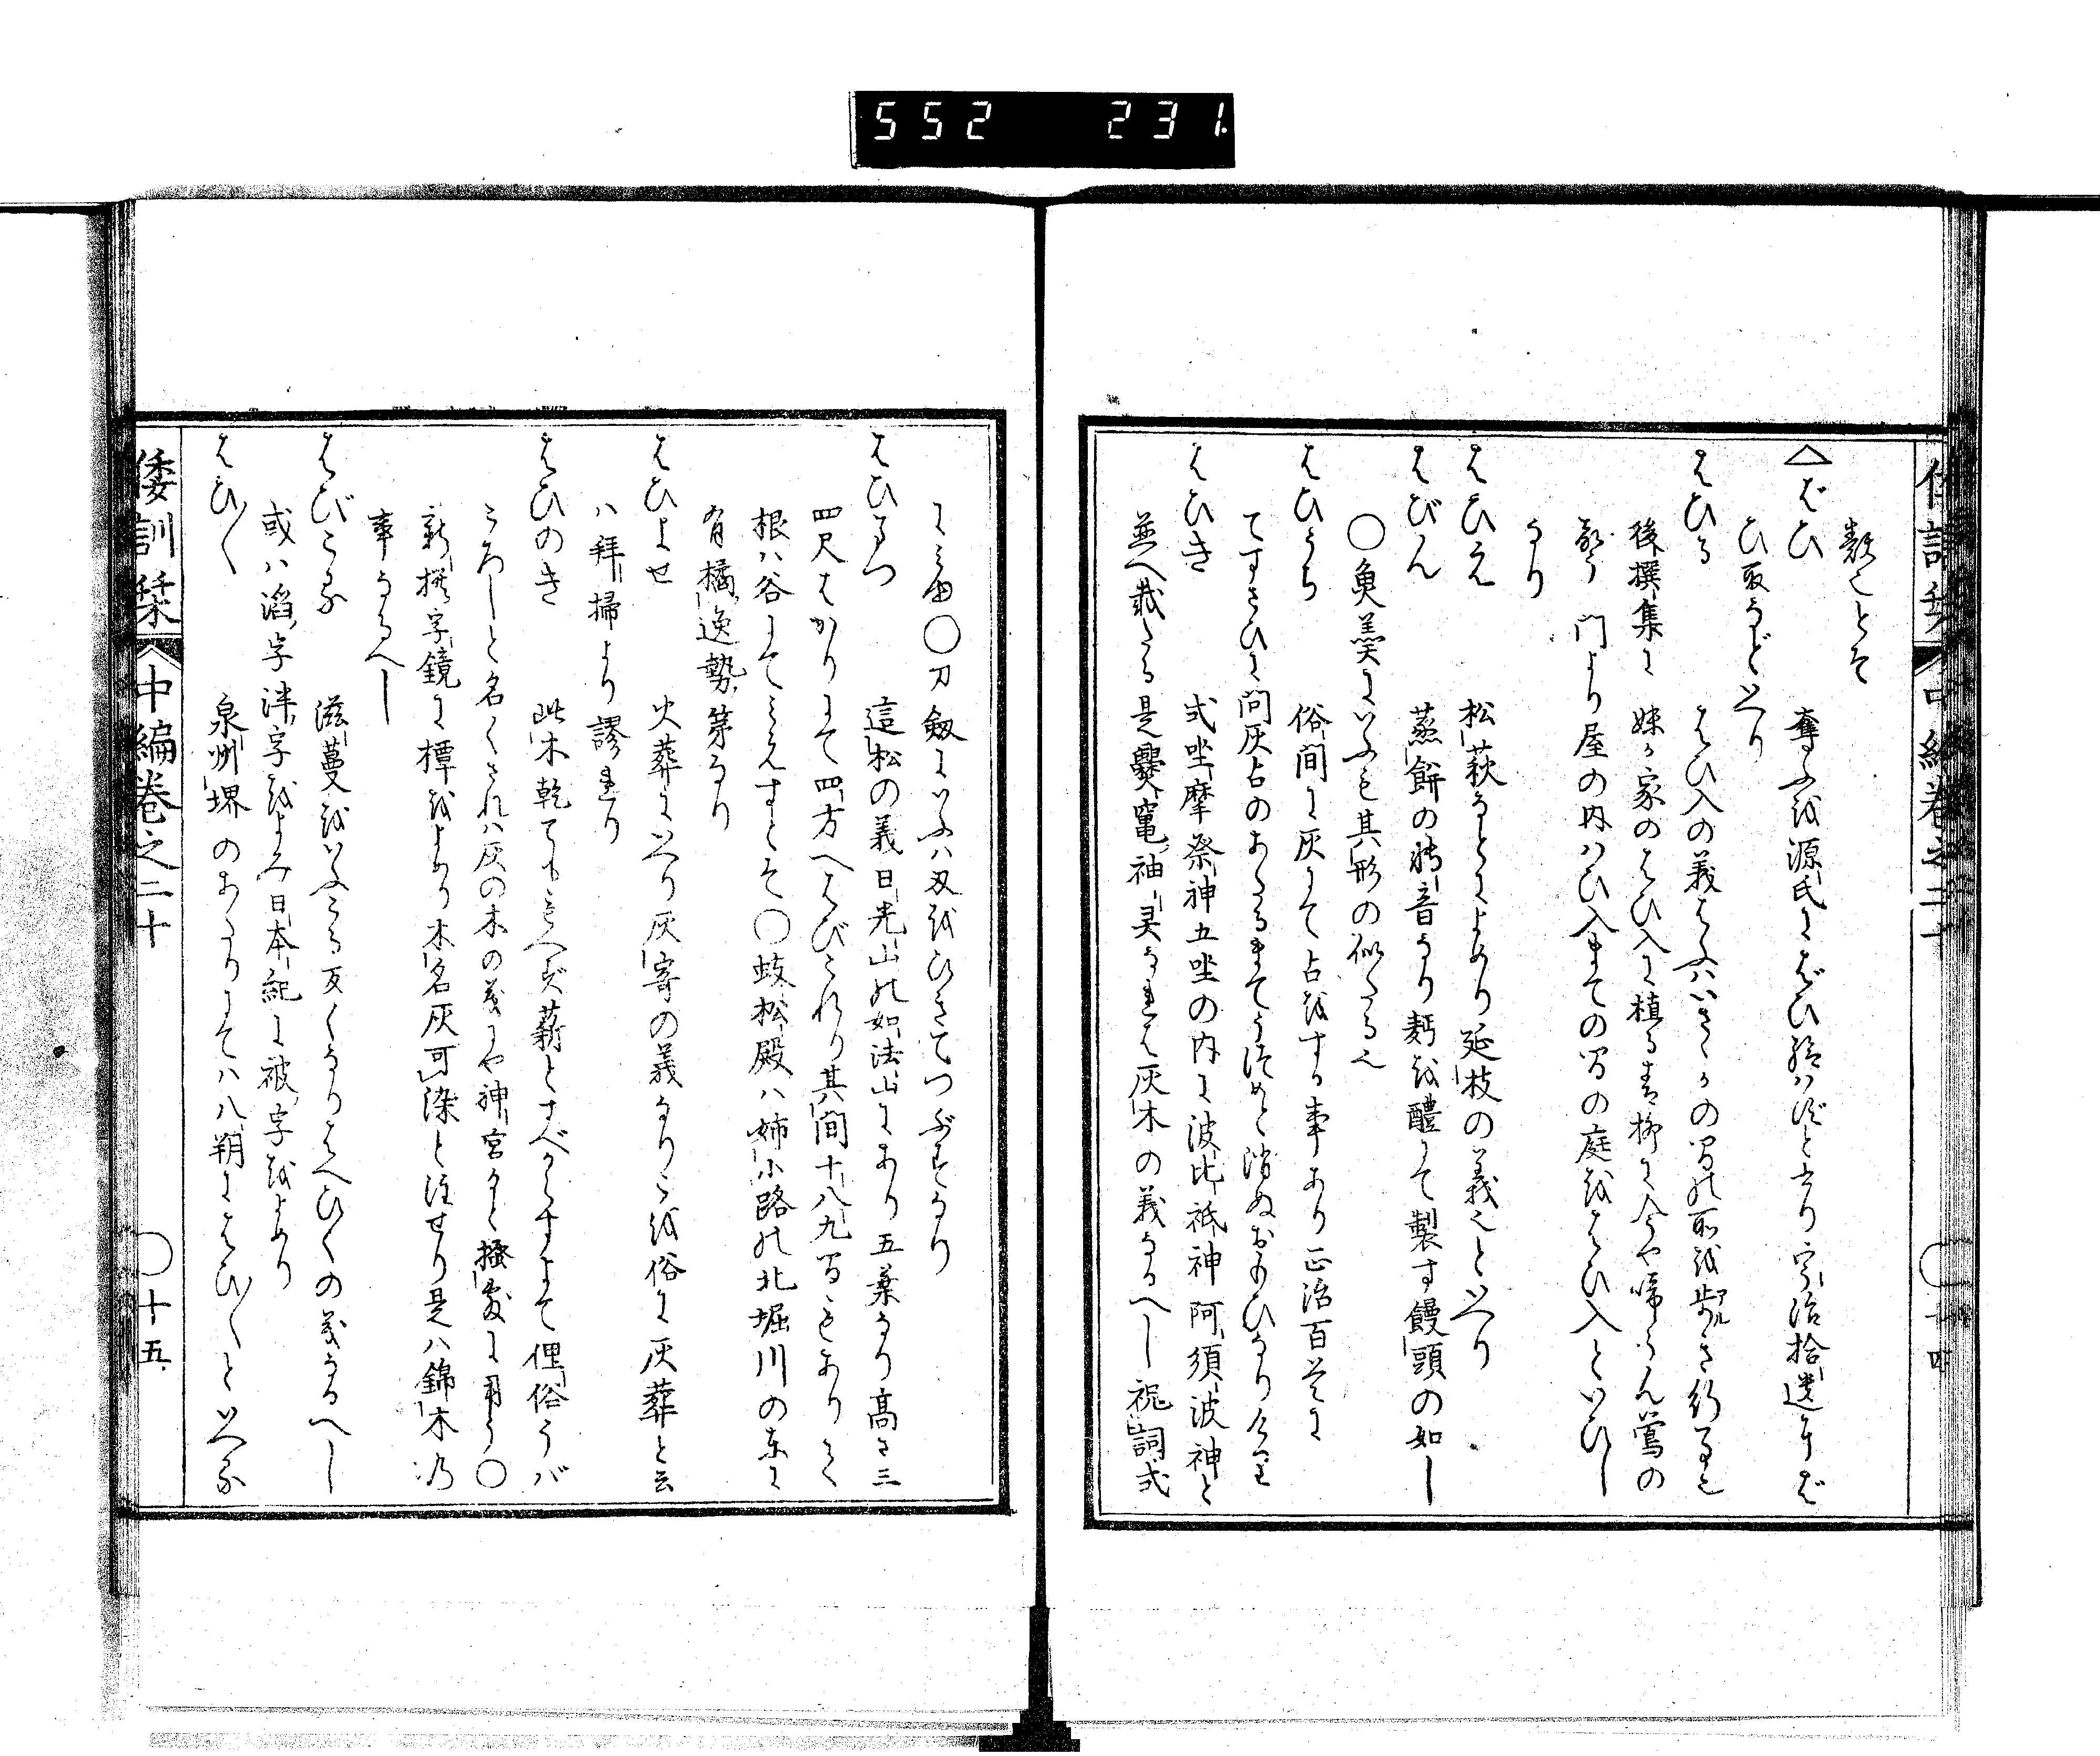 552 231.
數ことそ
△ばひ 奪ふを源氏にばひ給はずと云り宇治拾遺にば
ひ取などいへり
はひる はひ入の義はふハいさゝかの間の所を歩き行る也
後撰集に 妹が家のはひ入に植る青柳に今や啼らん鶯の
聲 門より屋の内はひ入まての間の庭をはひ入といひし
なり
はひえ 松萩なとによめり延枝の義也といへり
はびん 蒸餅の轉音なり麪を醴にて製す饅頭の如し
○魚羹にいふも其形の似たる也
はひうら 俗間に灰にて占をする事あり正治百首に
てすさひに問灰占のあたるまてうつめと消ぬおもひなりけり
はひき 式坐摩祭神五坐の内に波比祇神阿須波神と
並へ載たる是爨竈神霊なれは灰木の義なるへし祝詞式
にみゆ○刀劔にいふハ刃をひきてつぶすなり
はひまつ 這松の義日光山の如法山にあり五葉なり高さ三
四尺はかりにて四方へはびこれり其間十八九間もありて
根ハ谷にてみえすとそ○蚑松殿ハ姉小路の北堀川の東に
有橘逸勢第なり
はひよせ 火葬にいへり灰寄の義なりこを俗に灰葬と云
ハ拜掃より謬まり
はひのき 此木乾てももへず薪とすべからすよて俚俗うバ
ころしと名くされハ灰の木の義にや神宮なと搔敷に用う○
新撰字鏡に橝をよめり木名灰可染と注せり是ハ錦木の
事なるへし
はびこる 滋蔓をいふこる反くなりはへひくの義なるへし
或ハ滔字泮字をよみ日本紀に被字をよめり
はひ〳〵 泉州堺のあたりにてハ八朔にはひ〳〵といへる
倭訓栞 中編卷之二十 ○十五